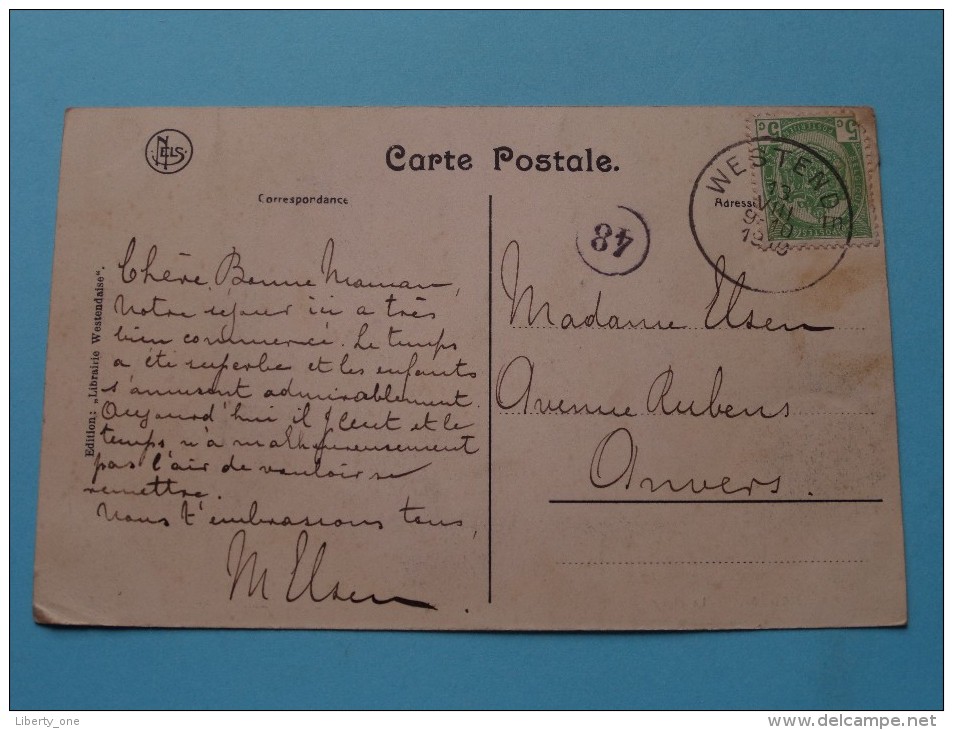 NELS
Carte Postale.
Correspondance
Adresse
5 c
c 5
WESTEND
13
VIII
48
Edition: „Librairie Westendaise“.
Chère Bonne Maman,
Notre séjour ici a très
bien commencé. Le temps
a été superbe et les enfants
s'amusent admirablement.
Aujourd'hui il pleut et le
temps n'a malheureusement
pas l'air de vouloir se
remettre.
Nous t'embrassons tous,
M Elsen.
Madame Elsen
Avenue Rubens
Anvers.
Liberty_one
http://www.delcampe.net